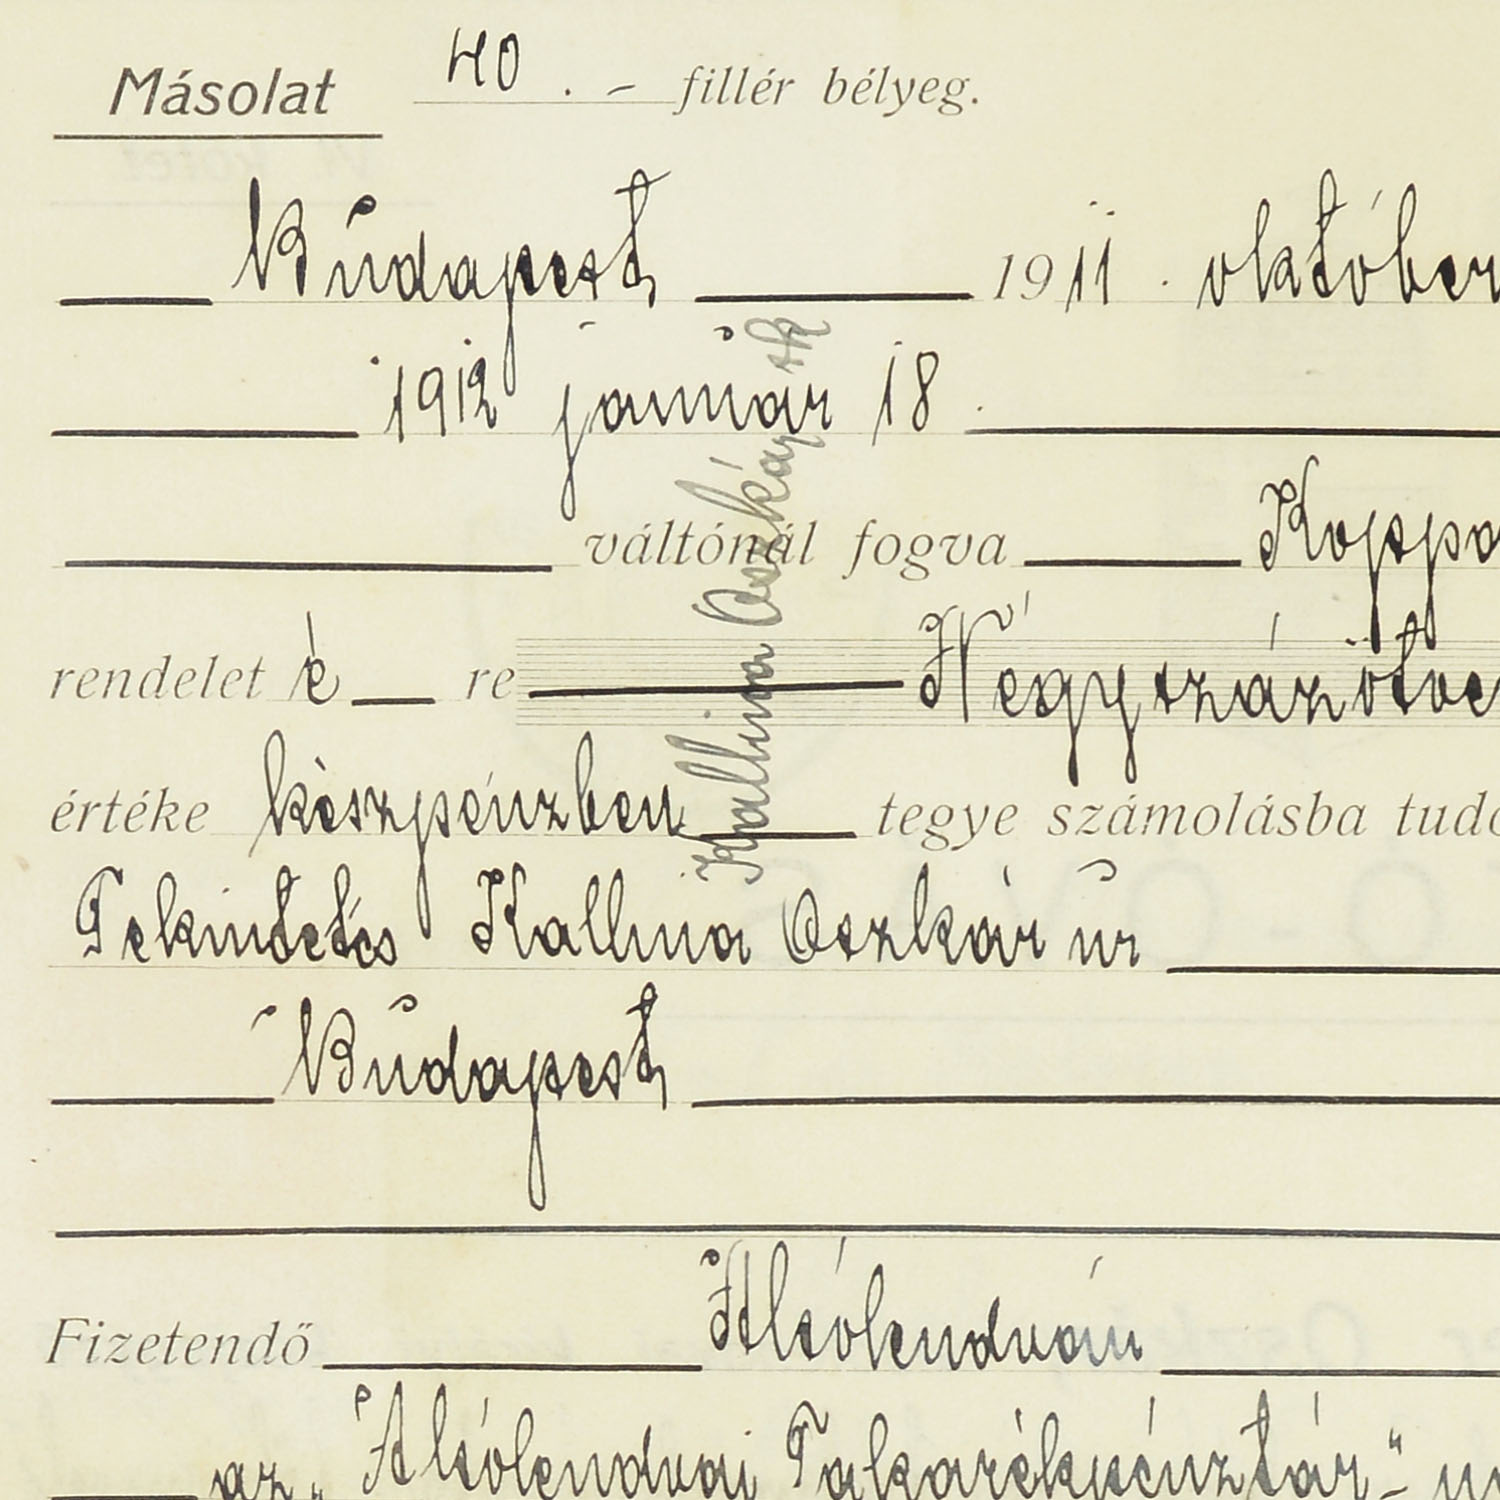 Másolat 40.- fillér bélyeg.
Budapest 1911. október
1912 január 18.
váltónál fogva Koppá
rendelet é re Négyszázötve
értéke készpénzben tegye számolásba tudó
Tekintetes Kallina Oszkár úr
Budapest
Fizetendő Alsólendván
az „Alsólendvai Takarékpénztár"-
Kallina Oszkár sk